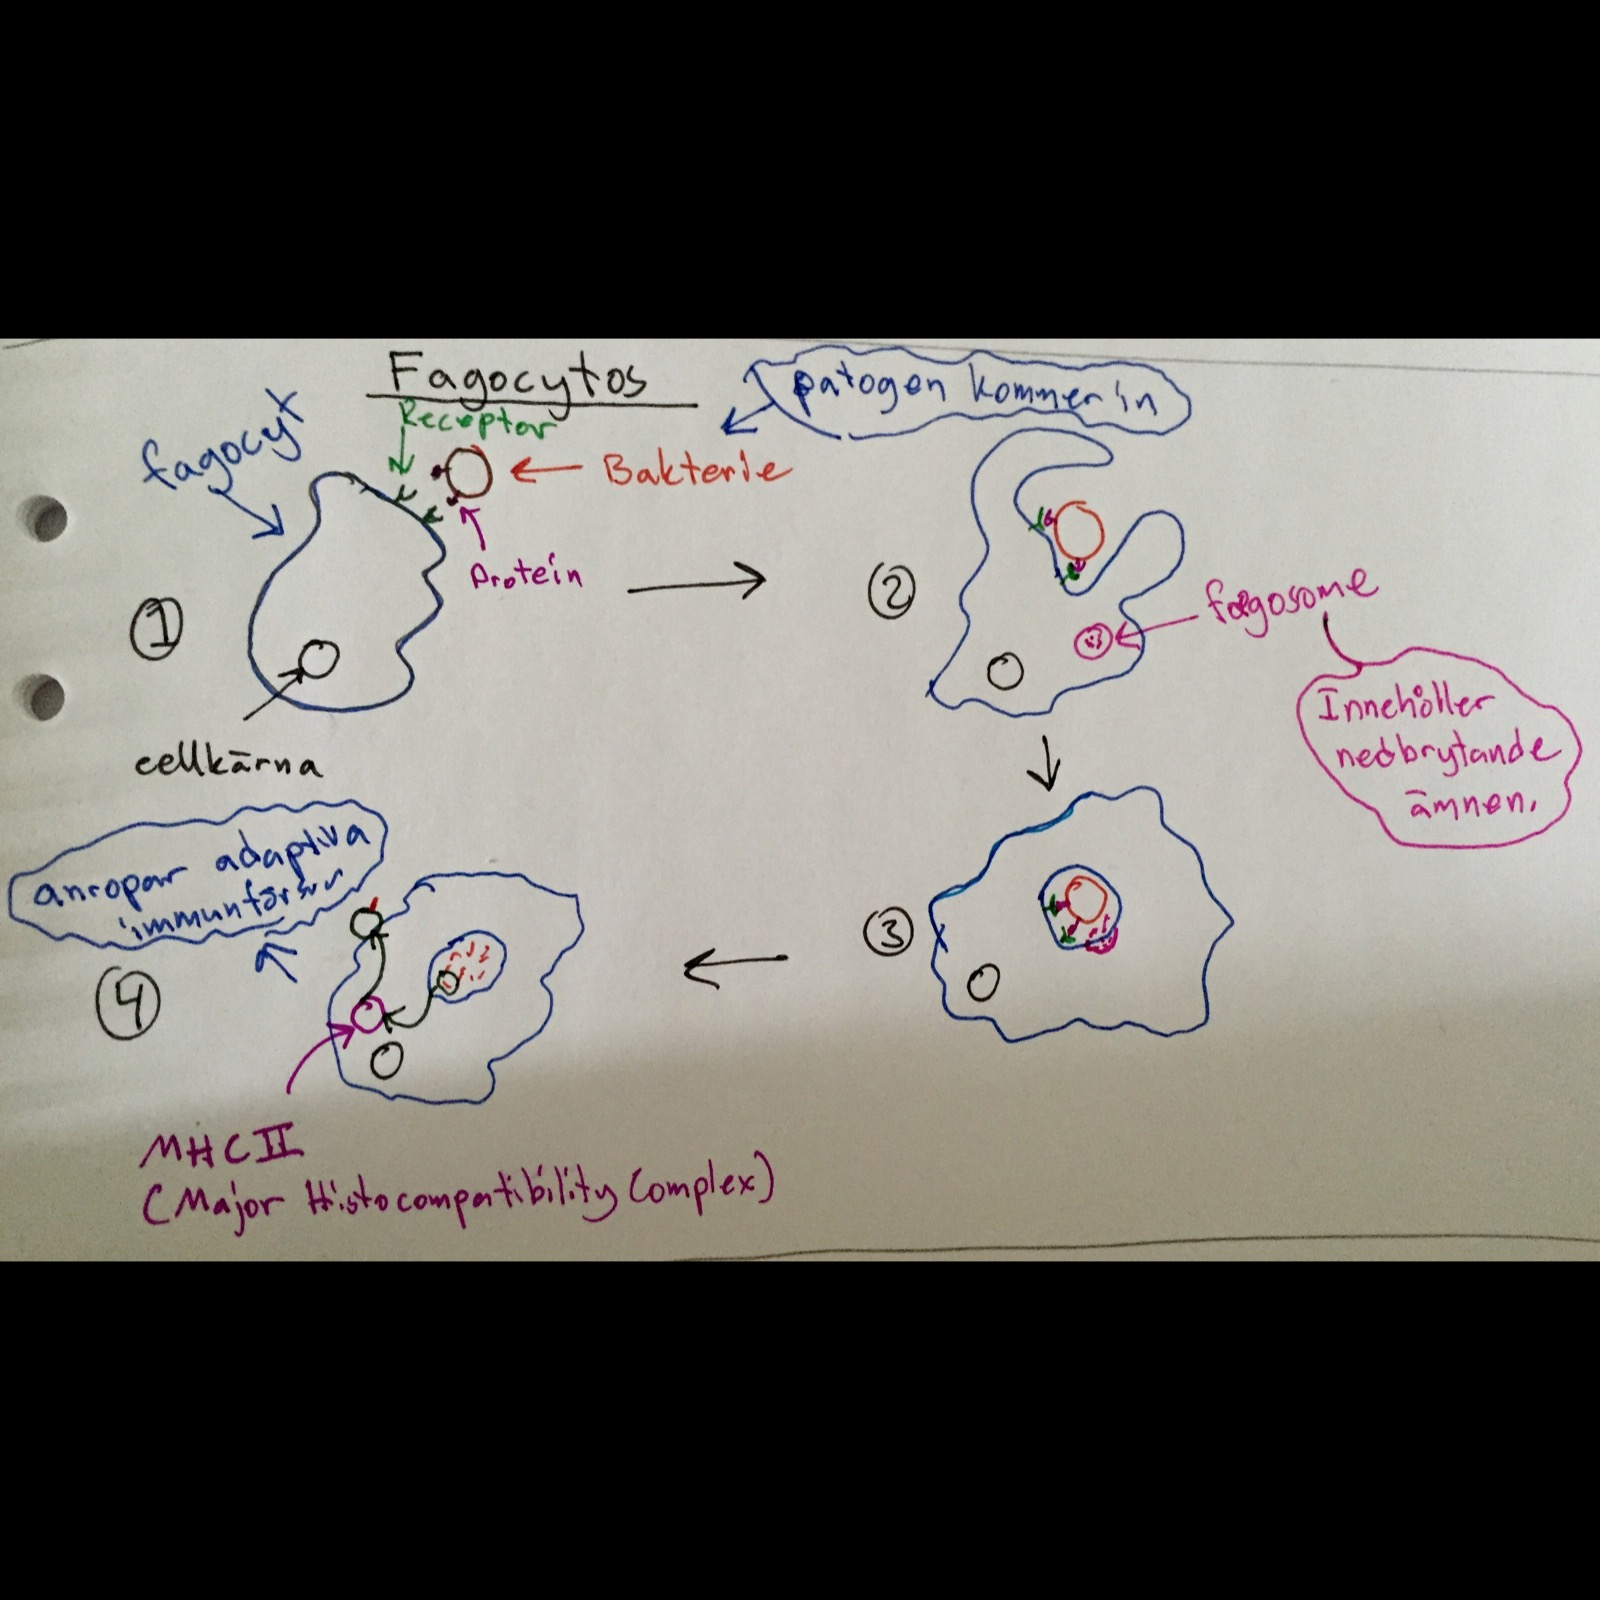 Fagocytos
patogen kommer in
fagocyt
Receptor
Bakterie
Protein
1
cellkärna
2
fagosome
Innehåller
nedbrytande
ämnen.
3
anropar adaptiva
immunförsvr
4
MHC II
(Major Histocompatibility Complex)